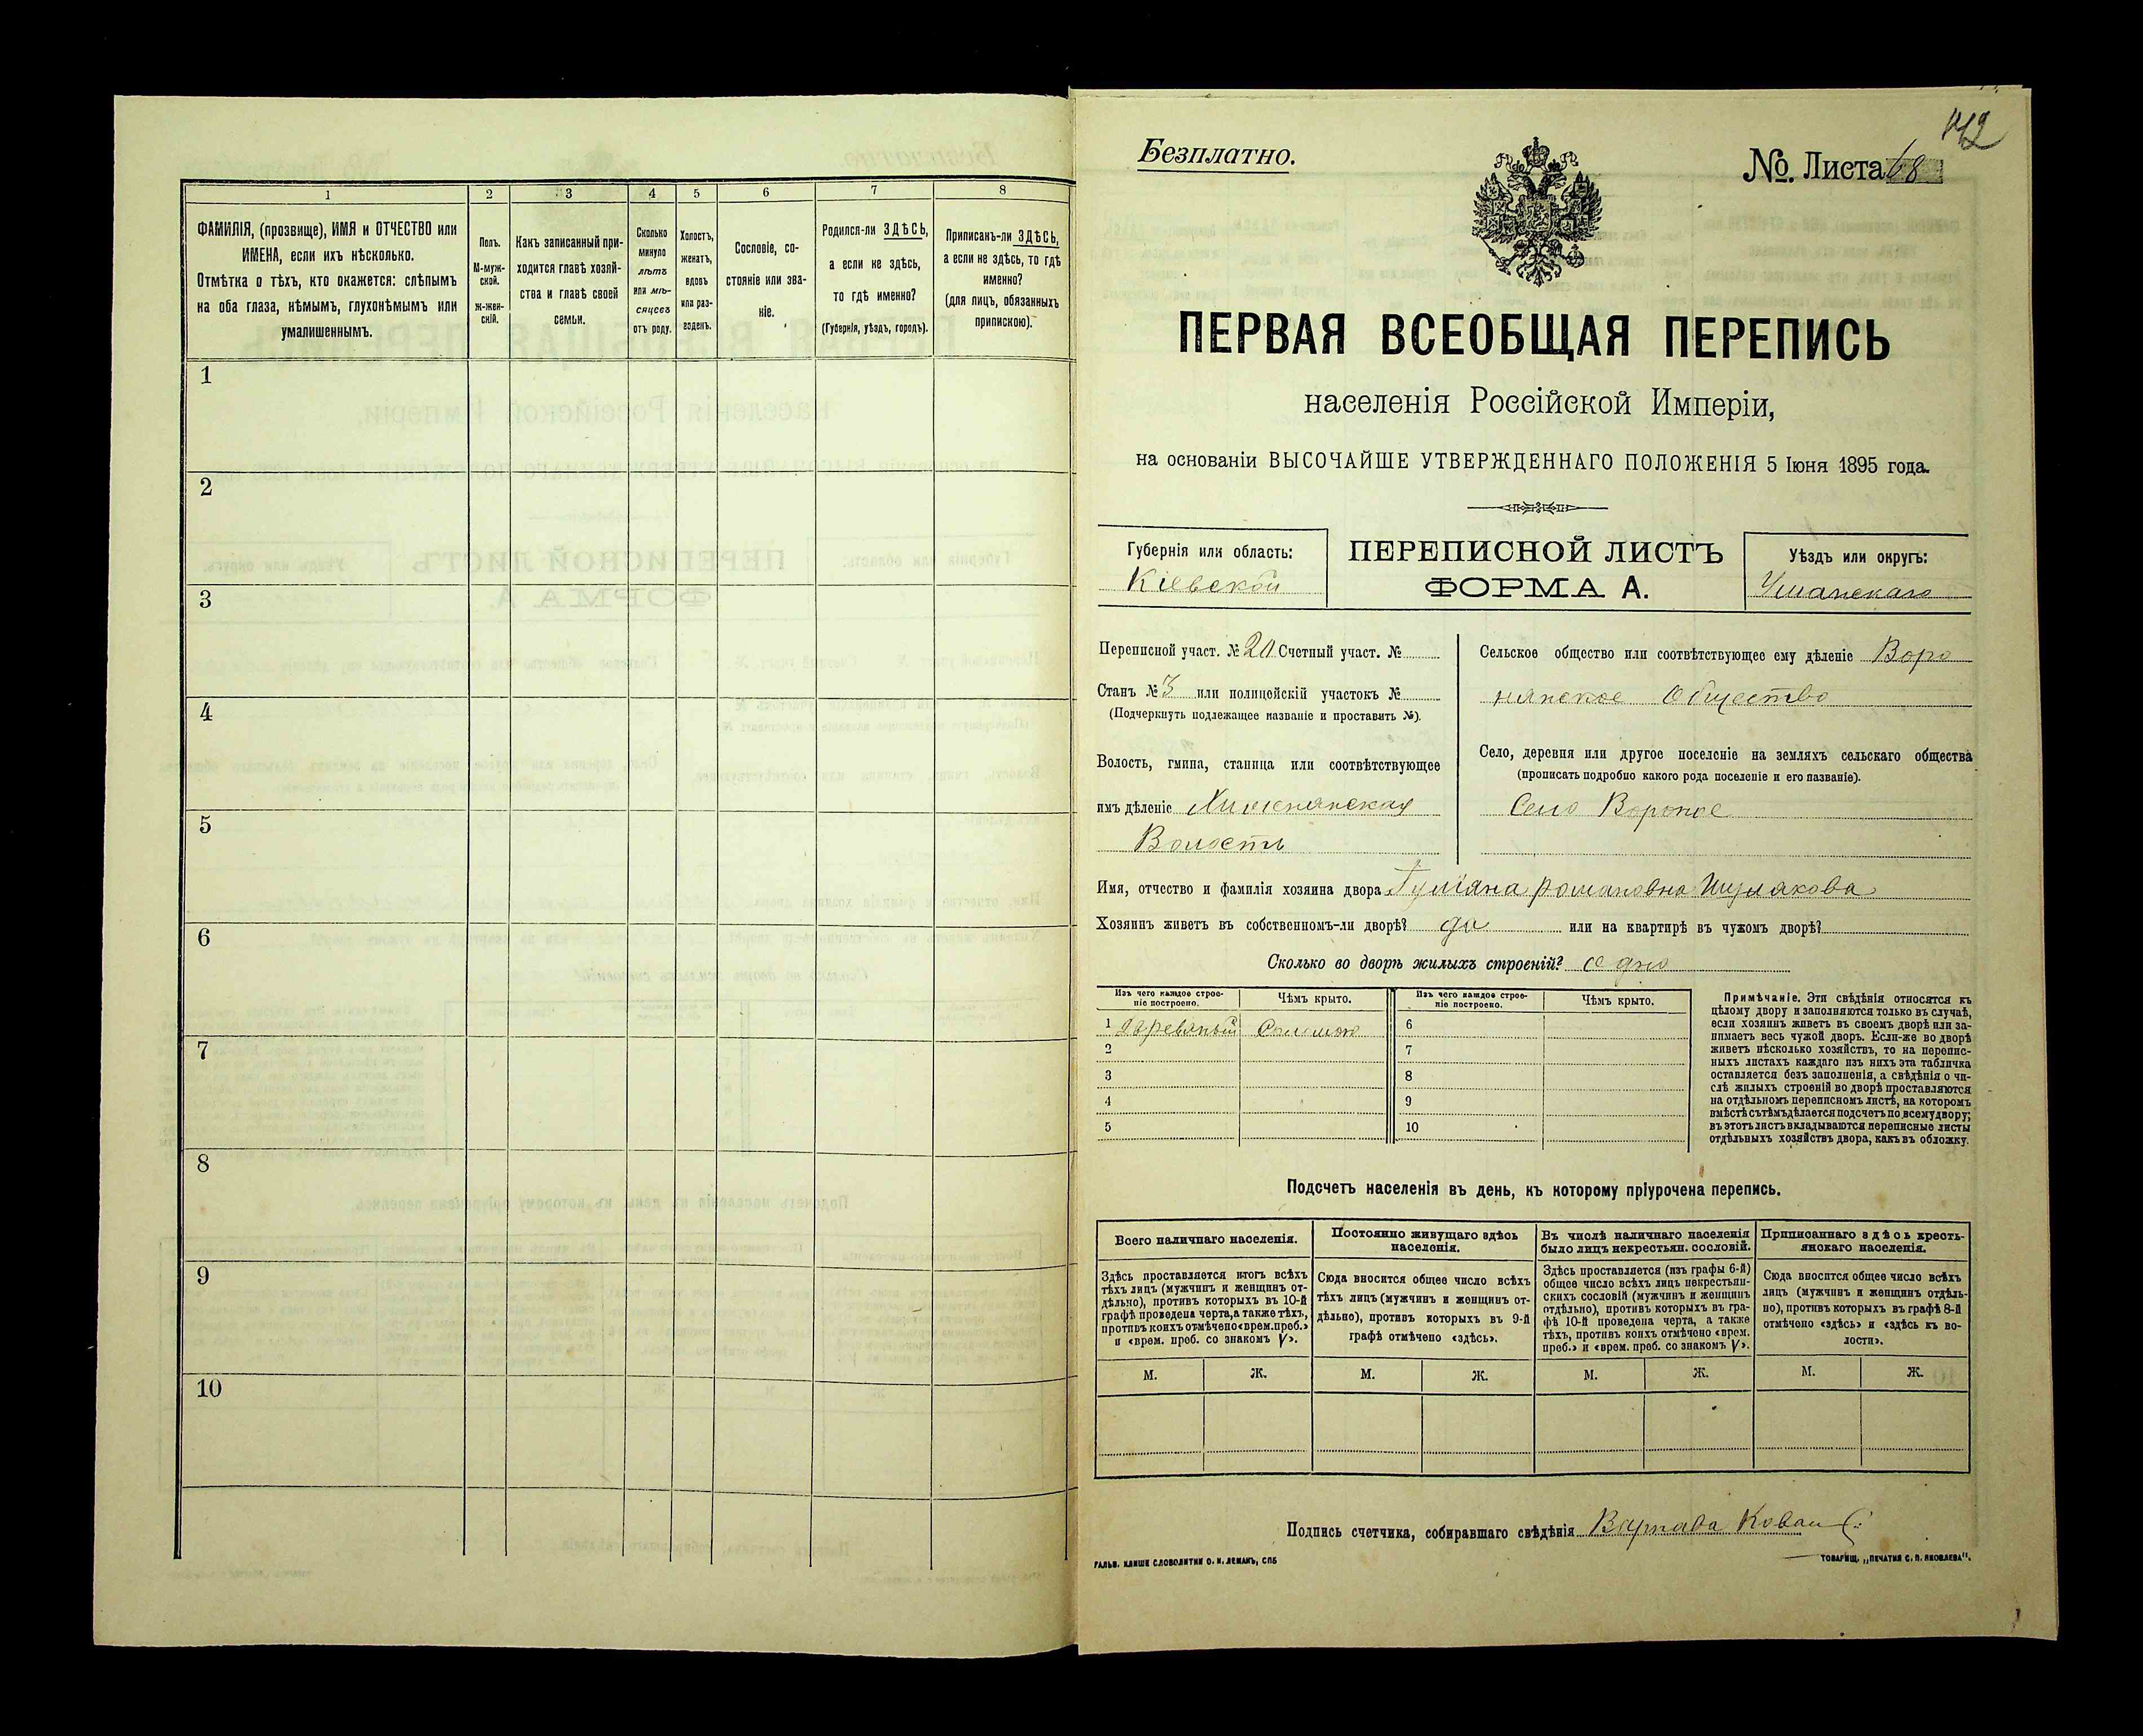 1
2
3
4
5
6
7
8
ФАМИЛІЯ, (прозвище), ИМЯ и ОТЧЕСТВО или
ИМЕНА, если ихъ нѣсколько.
Отмѣтка о тѣхъ, кто окажется: слѣпымъ
на оба глаза, нѣмымъ, глухонѣмымъ или
умалишеннымъ.
Полъ.
М-муж-
ской.
Ж-жен-
скій.
Какъ записанный при-
ходится главѣ хозяй-
ства и главѣ своей
семьи.
Сколько
минуло
лѣтъ
или мѣ-
сяцевъ
отъ роду.
Холостъ,
женатъ,
вдовъ
или раз-
веденъ.
Сословіе, со-
стояніе или зва-
ніе.
Родился-ли ЗДѢСЬ,
а если не здѣсь,
то гдѣ именно?
(Губернія, уѣздъ, городъ).
Приписанъ-ли ЗДѢСЬ,
а если не здѣсь, то гдѣ
именно?
(для лицъ, обязанныхъ
припискою).
1
2
3
4
5
6
7
8
9
10
142
Безплатно.
№. Листа 68
ПЕРВАЯ ВСЕОБЩАЯ ПЕРЕПИСЬ
населенія Россійской Имперіи,
на основаніи ВЫСОЧАЙШЕ УТВЕРЖДЕННАГО ПОЛОЖЕНІЯ 5 Іюня 1895 года.
Губернія или область:
Кіевской
ПЕРЕПИСНОЙ ЛИСТЪ
ФОРМА А.
Уѣздъ или округъ:
Уманскаго
Переписной участ. № 20 Счетный участ. №
Станъ № 3 или полицейскій участокъ №
(Подчеркнуть подлежащее названіе и проставить №).
Волость, гмина, станица или соотвѣтствующее
имъ дѣленіе
Волость
Сельское общество или соотвѣтствующее ему дѣленіе Воро
нянское Общество
Село, деревня или другое поселеніе на земляхъ сельскаго общества
(прописать подробно какого рода поселеніе и его названіе).
Село Вороное
Имя, отчество и фамилія хозяина двора Романовна Шулякова
Хозяинъ живетъ въ собственномъ-ли дворѣ? да или на квартирѣ въ чужомъ дворѣ?
Сколько во дворѣ жилыхъ строеній? одно
Изъ чего каждое строе-
ніе построено.
Чѣмъ крыто.
Изъ чего каждое строе-
ніе построено.
Чѣмъ крыто.
1 Соломою
2
3
4
5
6
7
8
9
10
Примѣчаніе. Эти свѣдѣнія относятся къ
цѣлому двору и заполняются только въ случаѣ,
если хозяинъ живетъ въ своемъ дворѣ или за-
нимаетъ весь чужой дворъ. Если-же во дворѣ
живетъ нѣсколько хозяйствъ, то на перепис-
ныхъ листахъ каждаго изъ нихъ эта табличка
оставляется безъ заполненія, а свѣдѣнія о чи-
слѣ жилыхъ строеній во дворѣ проставляются
на отдѣльномъ переписномъ листѣ, на которомъ
вмѣстѣ съ тѣмъ дѣлается подсчетъ по всему двору;
въ этотъ листъ вкладываются переписные листы
отдѣльныхъ хозяйствъ двора, какъ въ обложку.
Подсчетъ населенія въ день, къ которому пріурочена перепись.
Всего наличнаго населенія.
Постоянно живущаго здѣсь
населенія.
Въ числѣ наличнаго населенія
было лицъ некрестьян. сословій.
Приписаннаго здѣсь кресть-
янскаго населенія.
Здѣсь проставляется итогъ всѣхъ
тѣхъ лицъ (мужчинъ и женщинъ от-
дѣльно), противъ которыхъ въ 10-й
графѣ проведена черта, а также тѣхъ,
противъ коихъ отмѣчено «врем. преб.»
и «врем. преб. со знакомъ V».
Сюда вносится общее число всѣхъ
тѣхъ лицъ (мужчинъ и женщинъ от-
дѣльно), противъ которыхъ въ 9-й
графѣ отмѣчено «здѣсь».
Здѣсь проставляется (изъ графы 6-й)
общее число всѣхъ лицъ некрестьян-
скихъ сословій (мужчинъ и женщинъ
отдѣльно), противъ которыхъ въ гра-
фѣ 10-й проведена черта, а также
тѣхъ, противъ коихъ отмѣчено «врем.
преб.» и «врем. преб. со знакомъ V».
Сюда вносится общее число всѣхъ
лицъ (мужчинъ и женщинъ отдѣль-
но), противъ которыхъ въ графѣ 8-й
отмѣчено «здѣсь» и «здѣсь къ во-
лости».
М. Ж. М. Ж. М. Ж. М. Ж.
Подпись счетчика, собиравшаго свѣдѣнія Варнава
ГАЛЬВ. КЛИШЕ СЛОВОЛИТНИ О. И. ЛЕМАНЪ, СПБ
ТОВАРИЩ. „ПЕЧАТНЯ С. П. ЯКОВЛЕВА".